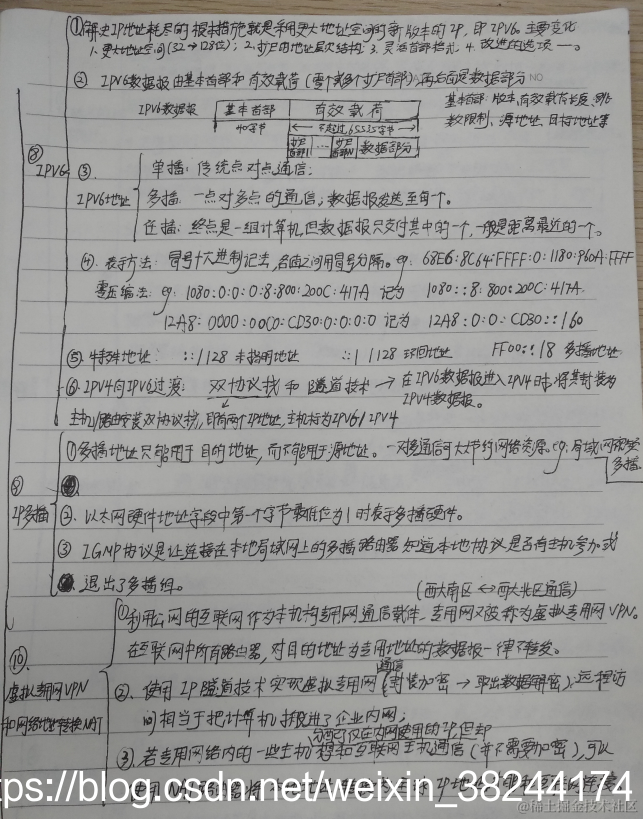 ①解决IP地址耗尽的根本措施就是采用更大地址空间的新版本的IP,即IPV6。主要变化
1.更大地址空间(32→128位);2.扩展的地址层次结构;3.灵活首部格式 4.改进的选项一。
② IPV6数据报由基本首部和有效载荷(零个或多个扩展首部),再后面是数据部分 NO
IPV6数据报 基本首部 有效载荷 基本首部:版本,有效载荷长度、跳
40字节 不超过65535字节 数限制、源地址、目标地址等
扩展首部1 … 扩展首部N 数据部分
⑧ IPV6
③ IPV6地址
单播:传统点对点通信;
多播:一点对多点的通信;数据报发送至每个。
任播:终点是一组计算机,但数据报只交付其中的一个,一般是距离最近的一个。
④.表示方法:冒号十六进制记法,各值之间用冒号分隔。eg:68E6:8C64:FFFF:0:1180:960A:FFFF
零压缩法:eg:1080:0:0:0:8:800:200C:417A 记为 1080::8:800:200C:417A
12A8:0000:00C0:CD30:0:0:0:0 记为 12A8:0:0:CD30::/60
⑤.特殊地址: ::/128 未指明地址 ::1/128 环回地址 FF00::/8 多播地址
⑥ IPV4向IPV6过渡:双协议栈和隧道技术 → 在IPV6数据报进入IPV4时,将其封装为
IPV4数据报。
主机/路由安装双协议栈,即有两个IP地址,主机标为IPV6/IPV4
⑨ IP多播
①多播地址只能用于目的地址,而不能用于源地址。一对多通信可大大节约网络资源。eg:局域网硬件
多播
②.以太网硬件地址字段中第一个字节最低位为1时表示多播硬件。
③ IGMP协议是让连接在本地局域网上的多播路由器知道本地协议是否有主机参加或
退出了多播组。
(西大南区 ↔ 西大北区通信)
⑩ 虚拟专用网VPN
和网络地址转换NAT
①利用公网的互联网作为本机构专用网通信载体,专用网又被称为虚拟专用网VPN。
在互联网中所有路由器,对目的地址为专用地址的数据报一律不转发。
②、使用IP隧道技术实现虚拟专用网通信(封装加密 → 取出数据解密),远程访
问相当于把计算机搬进了企业内网;
分配了仅在内网使用的IP,但却
③.若专用网络内的一些主机想和互联网主机通信(并不需要加密),可以
https://blog.csdn.net/weixin_38244174
@稀土掘金技术社区